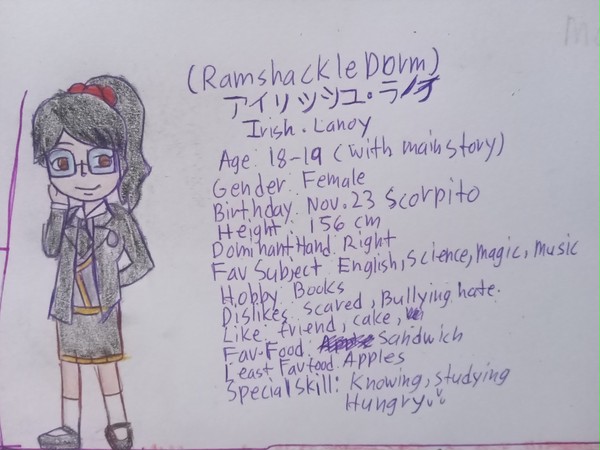 (Ramshackle Dorm)
アイリッシュ・ラノイ
Irish. Lanoy
Age: 18-19 (with mainstory)
Gender: Female
Birthday: Nov. 23 Scorpito
Height: 156 cm
Dominant Hand: Right
Fav Subject: English, Science, magic, music
Hobby: Books
Dislikes: Scared, Bullying hate.
Like: friend, cake,
Fav-Food: Sandwich
Least Fav food: Apples
Special Skill: Knowing, studying
Hungry